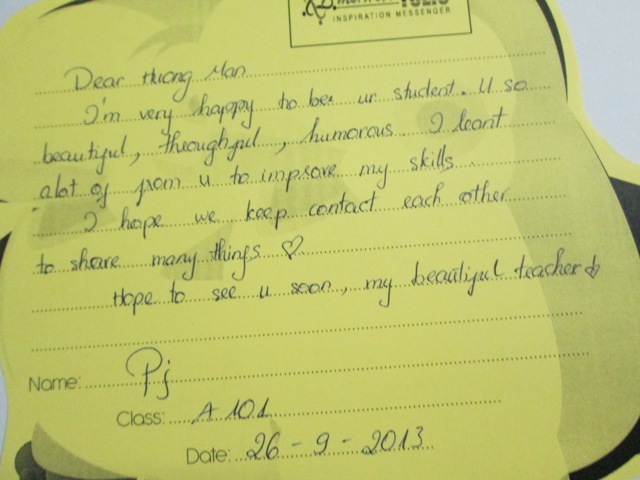 INSPIRATION MESSENGER
Dear Huong Man
I'm very happy to be ur student. U so
beautiful, throughful, humorous. I leant
alot of from u to improve my skills.
I hope we keep contact each other
to share many things ♡
Hope to see u soon, my beautiful teacher
Name: Pj
Class: A 101
Date: 26-9-2013